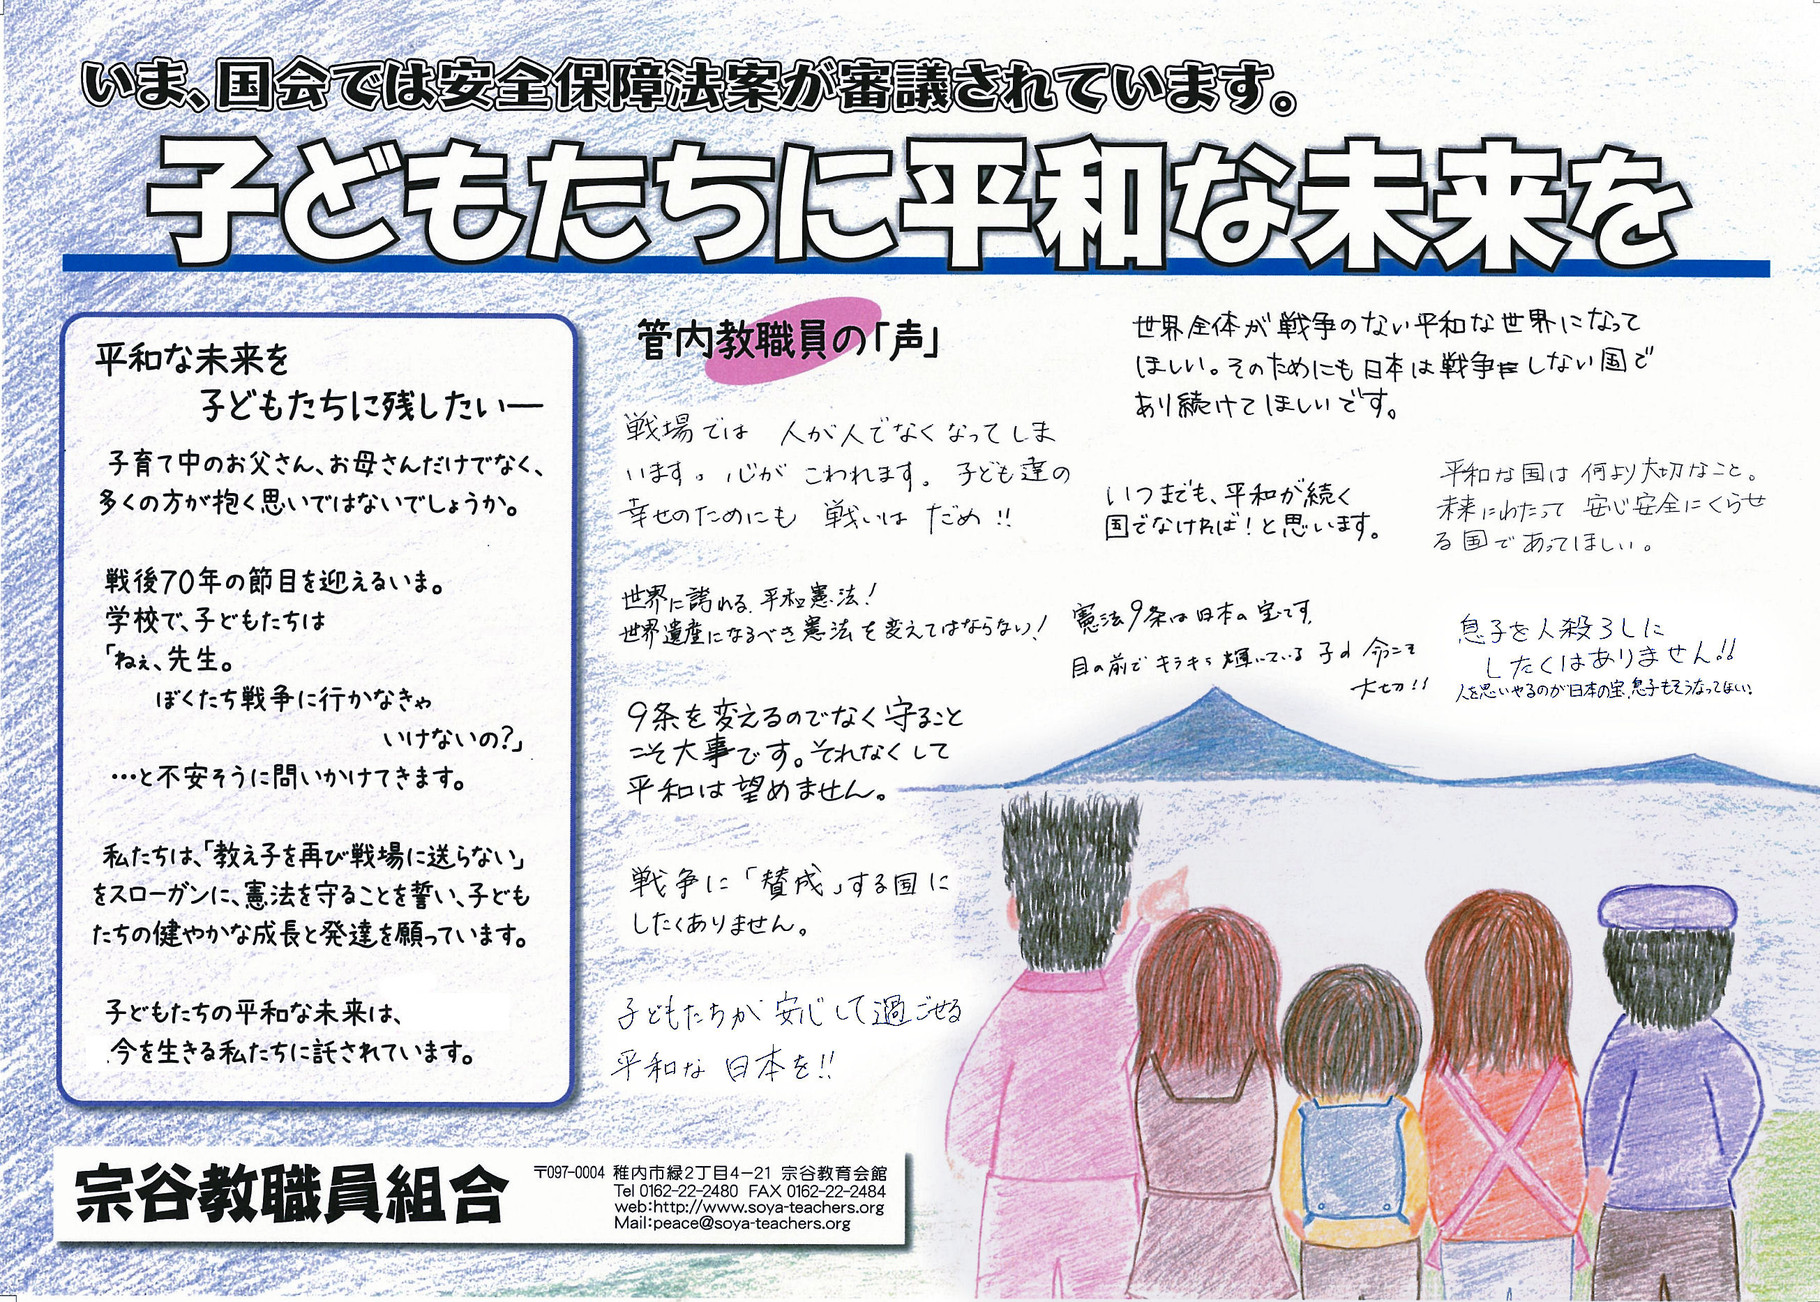 いま、国会では安全保障法案が審議されています。
子どもたちに平和な未来を
平和な未来を
子どもたちに残したい―
子育て中のお父さん、お母さんだけでなく、
多くの方が抱く思いではないでしょうか。
戦後70年の節目を迎えるいま。
学校で、子どもたちは
「ねぇ、先生。
ぼくたち戦争に行かなきゃ
いけないの?」
…と不安そうに問いかけてきます。
私たちは、「教え子を再び戦場に送らない」
をスローガンに、憲法を守ることを誓い、子ども
たちの健やかな成長と発達を願っています。
子どもたちの平和な未来は、
今を生きる私たちに託されています。
管内教職員の「声」
戦場では 人が人でなくなってしま
います。心が こわれます。子ども達の
幸せのためにも 戦いは だめ!!
世界に誇れる平和憲法!
世界遺産になるべき憲法を変えてはならない!
9条を変えるのでなく守ること
こそ大事です。それなくして
平和は望めません。
戦争に「賛成」する国に
したくありません。
子どもたちが 安心して過ごせる
平和な 日本を!!
世界全体が戦争のない平和な世界になって
ほしい。そのためにも日本は戦争をしない国で
あり続けてほしいです。
いつまでも、平和が続く
国でなければ!と思います。
平和な国は 何より大切なこと。
未来にわたって 安心安全にくらせ
る国であってほしい。
憲法9条は日本の宝です。
目の前でキラキラ輝いている 子の 命こそ
大切!!
息子を人殺ろしに
したくはありません!!
人を思いやるのが日本の宝、息子もそうなってほしい。
宗谷教職員組合
〒097-0004 稚内市緑2丁目4-21 宗谷教育会館
Tel 0162-22-2480 FAX 0162-22-2484
web:http://www.soya-teachers.org
Mail:peace@soya-teachers.org